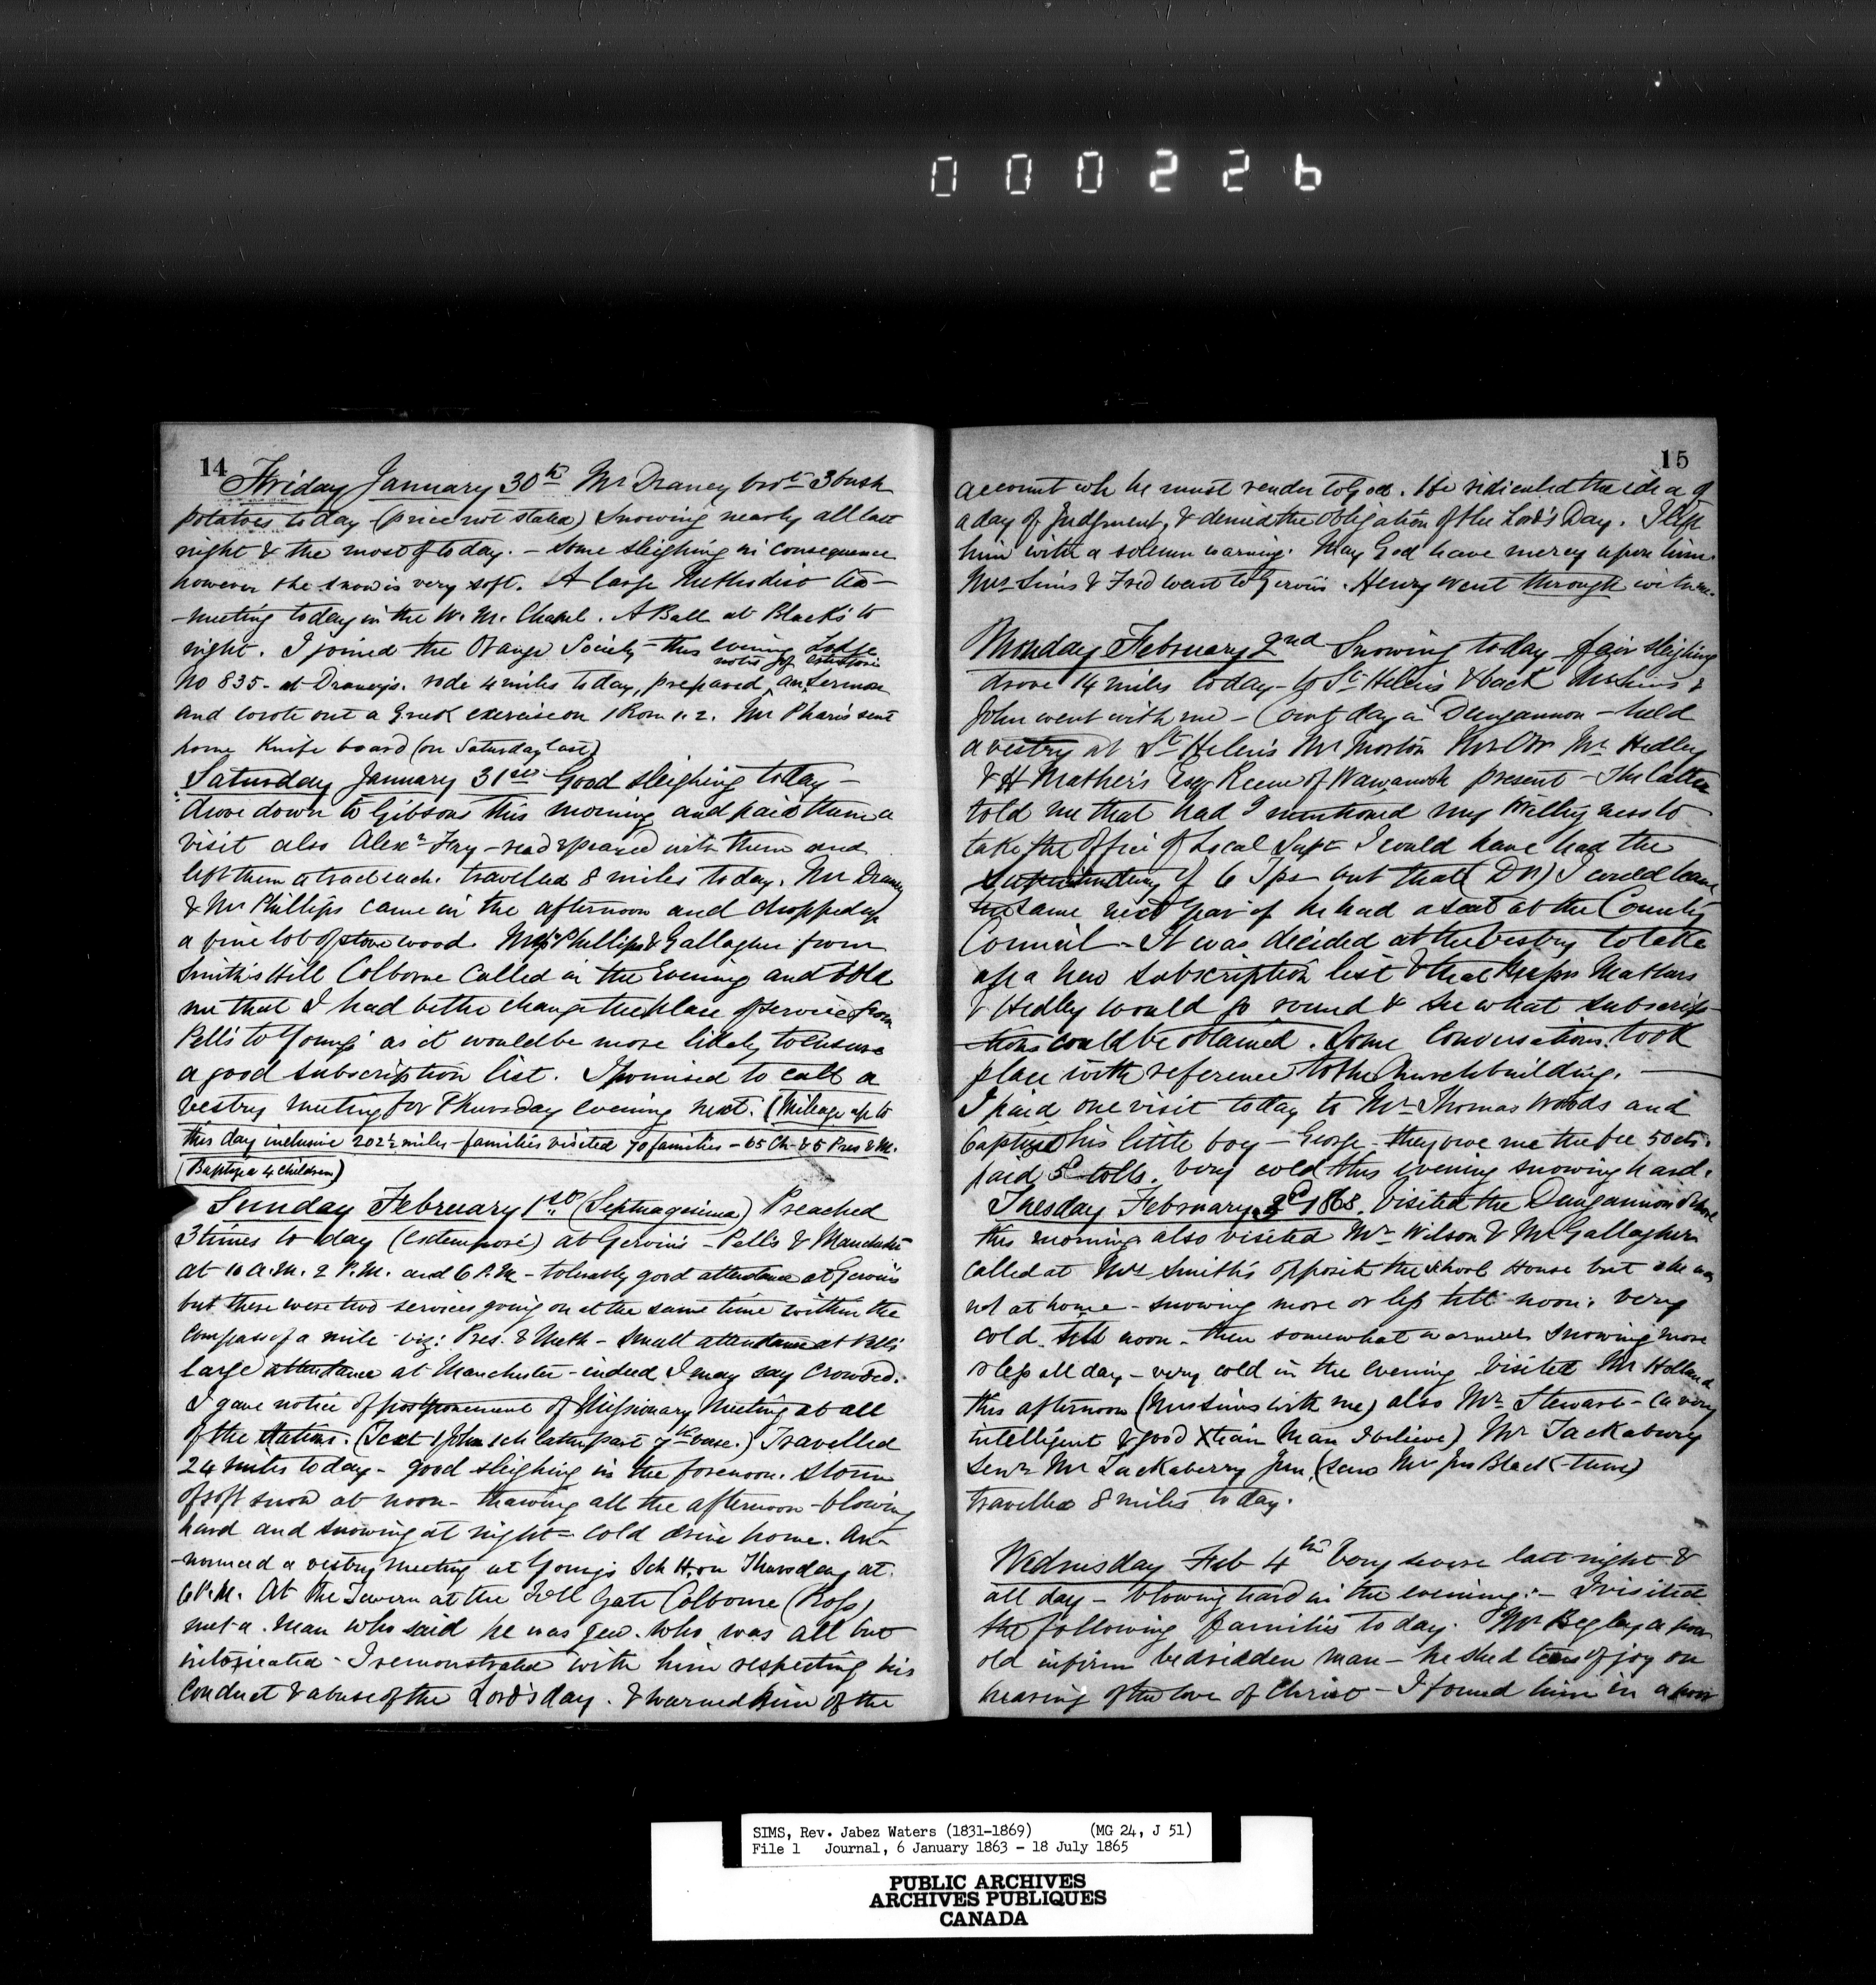 000226
14
Friday January 30th Mr Draney brot 3 bush
potatoes today (price not stated) Snowing nearly all last
night & the most of to day. - Some sleighing in consequence
however the snow is very soft. A large Methodist tea-
-meeting today in the W. M. Chapel. A Ball at Black's to
night. I joined the Orange Society this evening Lodge
No 835 - at Draney's. rode 4 miles today, prepared notes of an sermon
and wrote out a Greek exercise on 1 Rom 1. 2. Mr Pharis sent
home Knife board (on Saturday last)
Saturday January 31st Good sleighing today -
drove down to Gibsons this morning and paid them a
visit also Alexr Fry - read & prayed with them and
left them a tract each. travelled 8 miles today. Mr Draney
& Mr Phillips came in the afternoon and chopped up
a fine lot of stove wood. Messrs Phillips & Gallagher from
Smith's Hill Colborne called in the Evening and told
me that I had better change the place of service from
Pell's to Youngs as it would be more likely to ensure
a good subscription list. I promised to call a
vestry meeting for Thursday evening next. (Mileage up to
this day inclusive 202½ miles - families visited 70 families - 65 Ch & 5 Pres & M.
(Baptized 4 children)
Sunday February 1st (Septuagesima) Preached
3 times to day (extemporé) at Gervin's - Pell's & Manchester
at 10 A.M. 2 P.M. and 6 P.M - tolerably good attendance at Gervin's
but there were two services going on at the same time within the
compass of a mile viz: Pres. & Meth - Small attendance at Pell's
large attendance at Manchester - indeed I may say crowded.
I gave notice of postponement of Missionary Meeting at all
of the Stations. (Text 1 John 1ch latter part 7th verse.) Travelled
24 miles today - good sleighing in the forenoon. Storm
of soft snow at noon - thawing all the afternoon - blowing
hard and snowing at night - cold drive home. An-
-nounced a vestry meeting at Young's Sch H. on Thursday at
6 P.M. At the Tavern at the Toll Gate Colborne (Ross)
met a man who said he was Jew. who was all but
intoxicated - I remonstrated with him respecting his
conduct & abuse of the Lord's day. & warned him of the
15
account wh he must render to God. He ridiculed the idea of
a day of Judgment, & denied the obligation of the Lord's Day. I left
him with a solemn warning. May God have mercy upon him.
Mrs Sims & Fred went to Gervins. Henry went through with me.
Monday February 2nd Snowing today - fair sleighing
drove 14 miles today - to St Helen's & back Mrs Sims &
John went with me - Court day in Dungannon - held
a vestry at St Helen's Mr Morton Mr Hedley
& H Mathers Esqr Reeve of Wawanosh present - The latter
told me that had I mentioned my Willingness to
take the office of Local Supt I could have had the
of 6 Tps but that (DV) I could have
the same next year if he had a seat at the County
Council - It was decided at the Vestry to take
up a new subscription list & that Messrs Mathers
& Hedley would go round & see what subscrip-
-tions could be obtained. Some conversation took
place with reference to the Church building. -
I paid one visit today to Mr Thomas Woods and
baptized his little boy - George - they owe me the fee 50 cts.
paid 5c tolls. very cold this evening snowing hard.
Tuesday February 3d 1863. Visited the Dungannon School
this morning also visited Mr Wilson & Mr Gallagher
called at Mrs Smith's opposite the school House but she was
not at home - snowing more or less till noon. very
cold till noon - then somewhat warmer snowing more
or less all day - very cold in the evening Visited Mr Holland
this afternoon (Mrs Sims with me) also Mr Stewart - (a very
intelligent & good Xtian Man I believe) Mr Tackabury
Senr Mr Tackaberry Jun, (saw Mr Jno Black there)
travelled 8 miles to day.
Wednesday Feb 4th Very severe last night &
all day - blowing hard in the evening. - I visited
the following families to day. Mr Begley a poor
old infirm bedridden man - he shed tears of joy on
hearing of the love of Christ - I found him in a poor
SIMS, Rev. Jabez Waters (1831-1869) (MG 24, J 51)
File 1 Journal, 6 January 1863 - 18 July 1865
PUBLIC ARCHIVES
ARCHIVES PUBLIQUES
CANADA